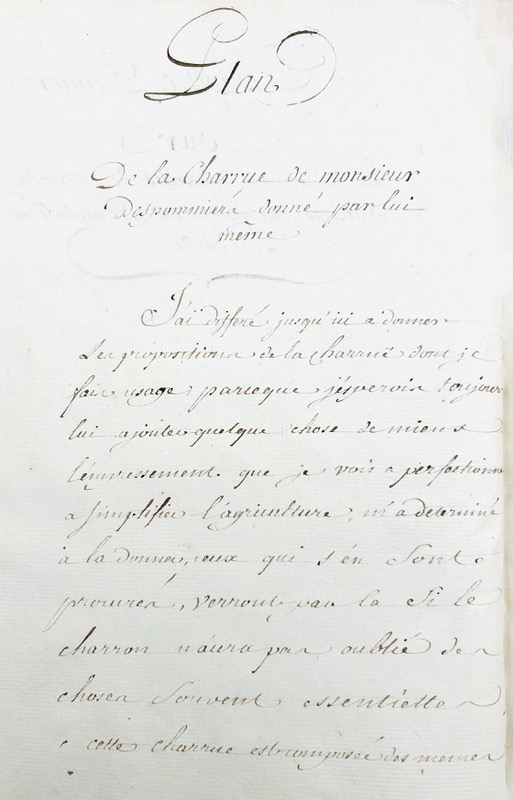 Plan
De la Charrue de monsieur
Despommiers donné par lui
même
J'ai différé jusqu'ici a donner
Les propositions de la charruë dont je
fais usage, parceque j'ésperois toujours
lui ajouter quelque chose de mieux
l'empressement que je vois a perfectionner
a simplifier l'agriculture, m'a determiné
à la donner, ceux qui s'én sont
procurés, verront par la si le
charron n'aura pas oublié des
choses souvent essentielles
cette charrue est composée des memes